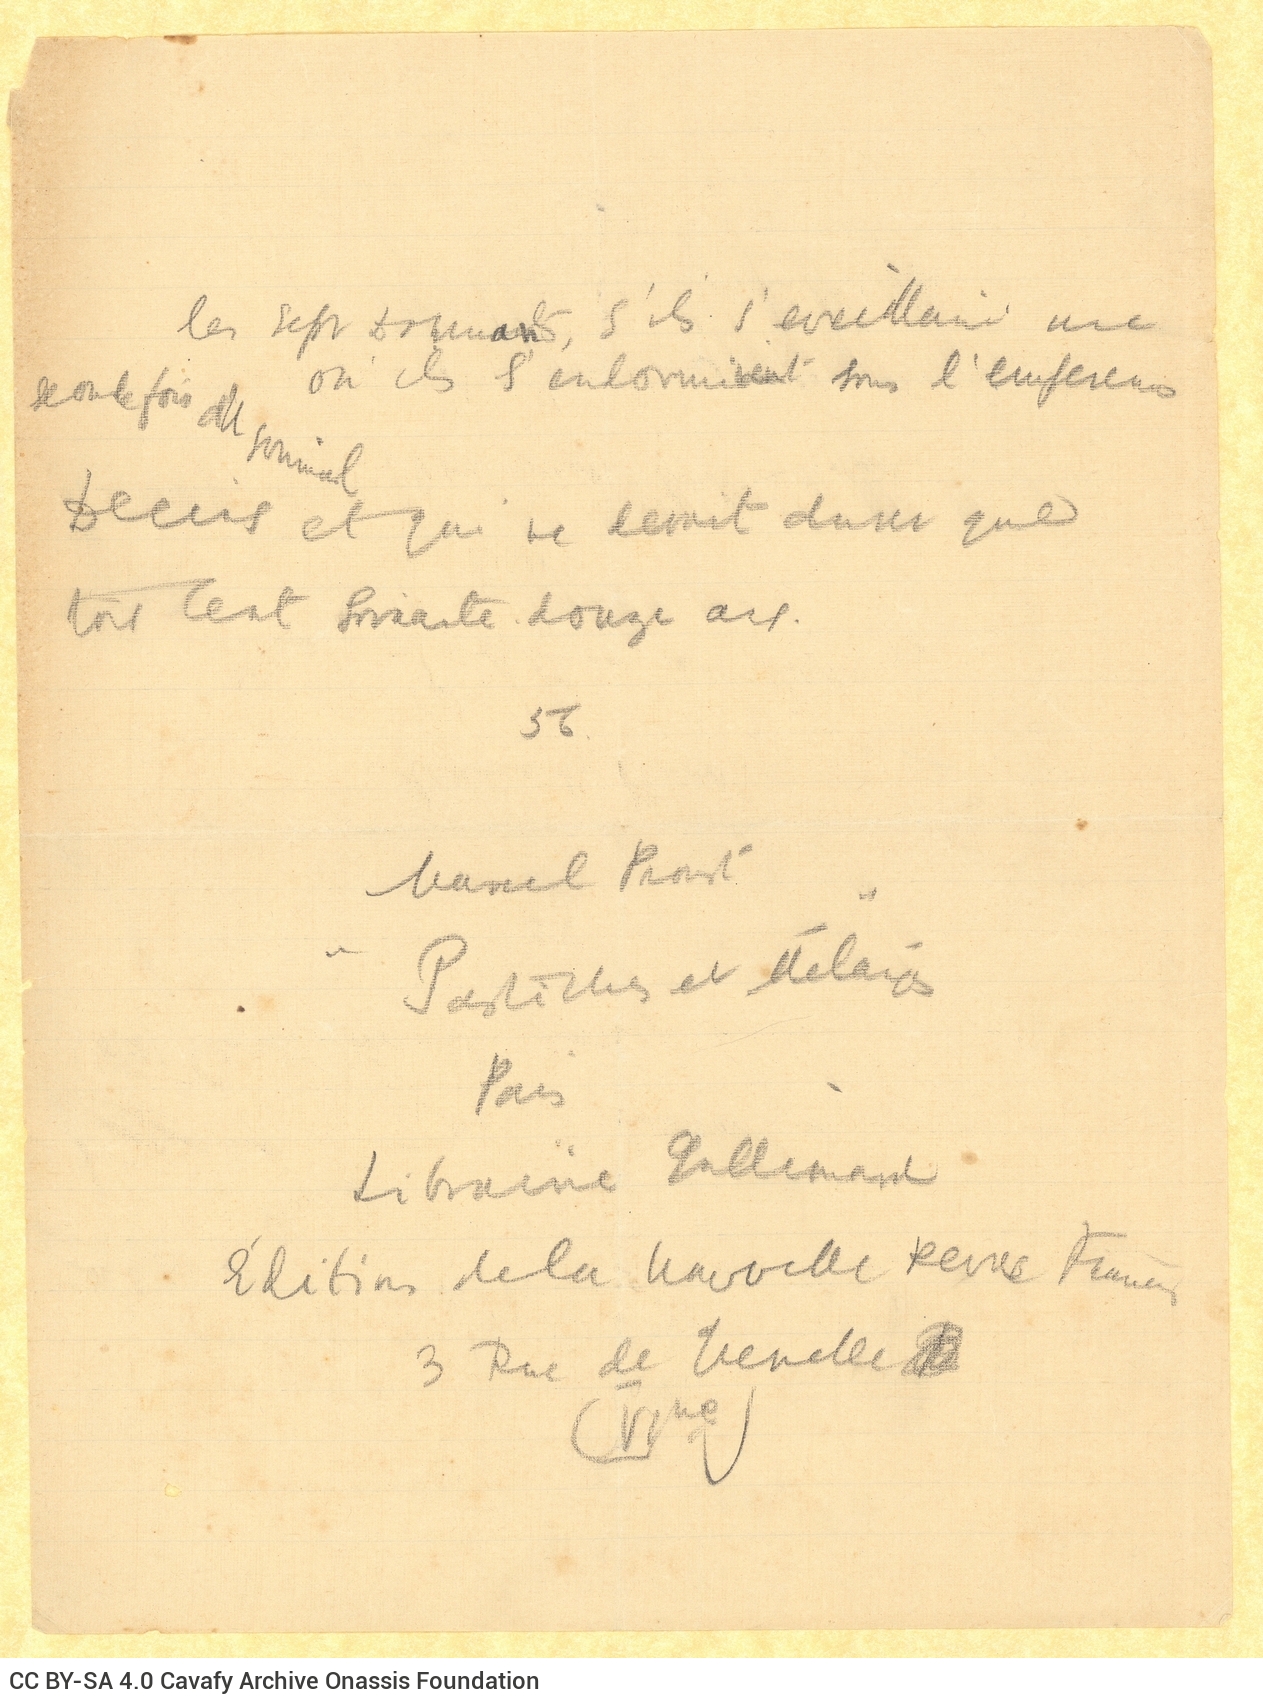 les sept Dormants, s'ils s'eveillaient une
seconde fois du sommeil
où ils s'endormirent sous l'empereur
Decius et qui ne devait durer que
trois cent soixante douze ans.
56
Marcel Proust
"Pastiches et Mélanges"
Paris
Librairie Gallimard
Éditions de la Nouvelle Revue Français
3 Rue de Grenelle
(VIme)
CC BY-SA 4.0 Cavafy Archive Onassis Foundation